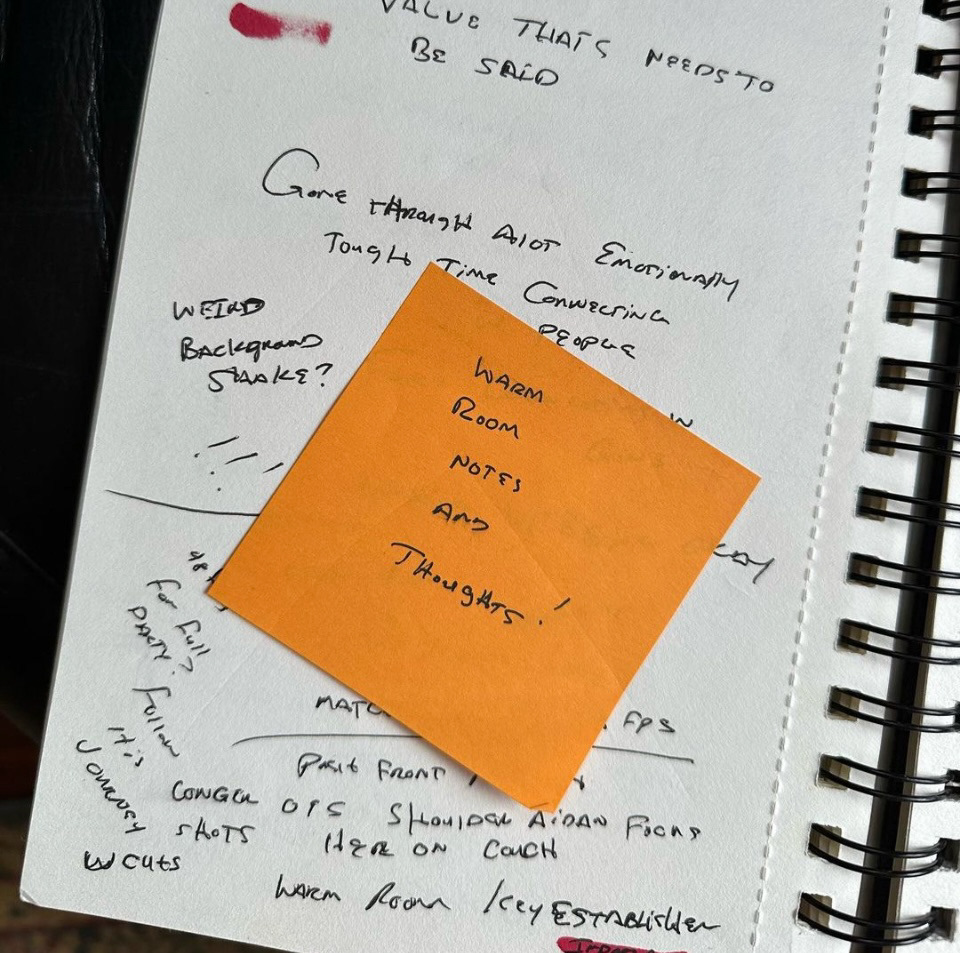 VALUE THATS NEEDS TO
BE SAID
Gone through Alot Emotionally
Tough Time Connecting
PEOPLE
WEIRD
Background
SHAKE?
!!!
IN
WARM
ROOM
NOTES
AND
THOUGHTS!
For Full
PARTY?
Follow
It's
JOURNEY
W CUTS
FPS
FRONT
LONGER
SHOTS
SHOULDER AIDAN FOCUS
HERE ON COUCH
WARM ROOM / key ESTABLISHER